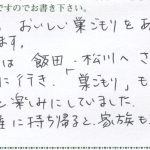 ですのでお書き下さい。
、おいしい巣ごもりをあ
ます。
は 飯田・松川へさ
に行き、「巣ごもり」も
と楽しみにしていました。
に持ち帰ると、家族も